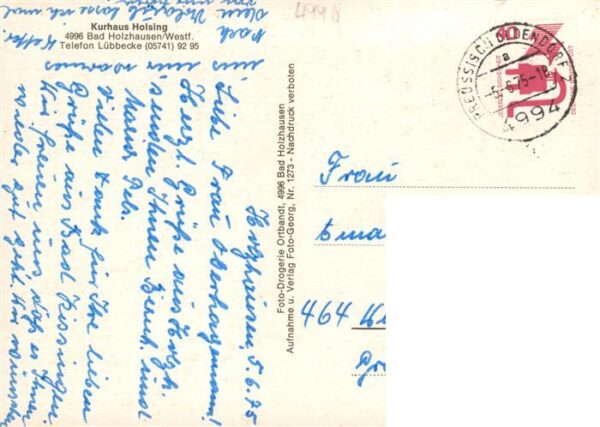 Kurhaus Holsing
4996 Bad Holzhausen/Westf.
Telefon Lübbecke (05741) 92 95
Holzhausen, 5.6.75
Liebe Frau Oberhagemann!
Herzl. Grüße aus Holzh.
senden Ihnen Bernh. und
Maria Geb.
Vielen Dank für Ihre lieben
Grüße aus Bad Kissingen.
Wir freuen uns daß es Ihnen
wieder gut geht. Wir wünschen
uns warmes Wetter.
Nach dem
Foto-Drogerie Ortbandt, 4996 Bad Holzhausen
Aufnahme u. Verlag Foto-Georg, Nr. 1273 - Nachdruck verboten
PREUSSISCH OLDENDORF
a
-5.6.75-18
4994
Frau
464